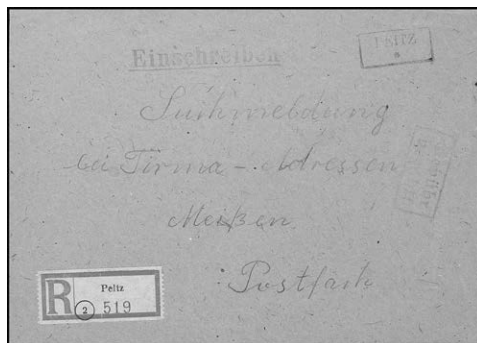 Einschreiben
PEITZ
Suchmeldung
bei Firma - Adressen
Meißen
Postfach
Gebühr
R
Peitz
2 519